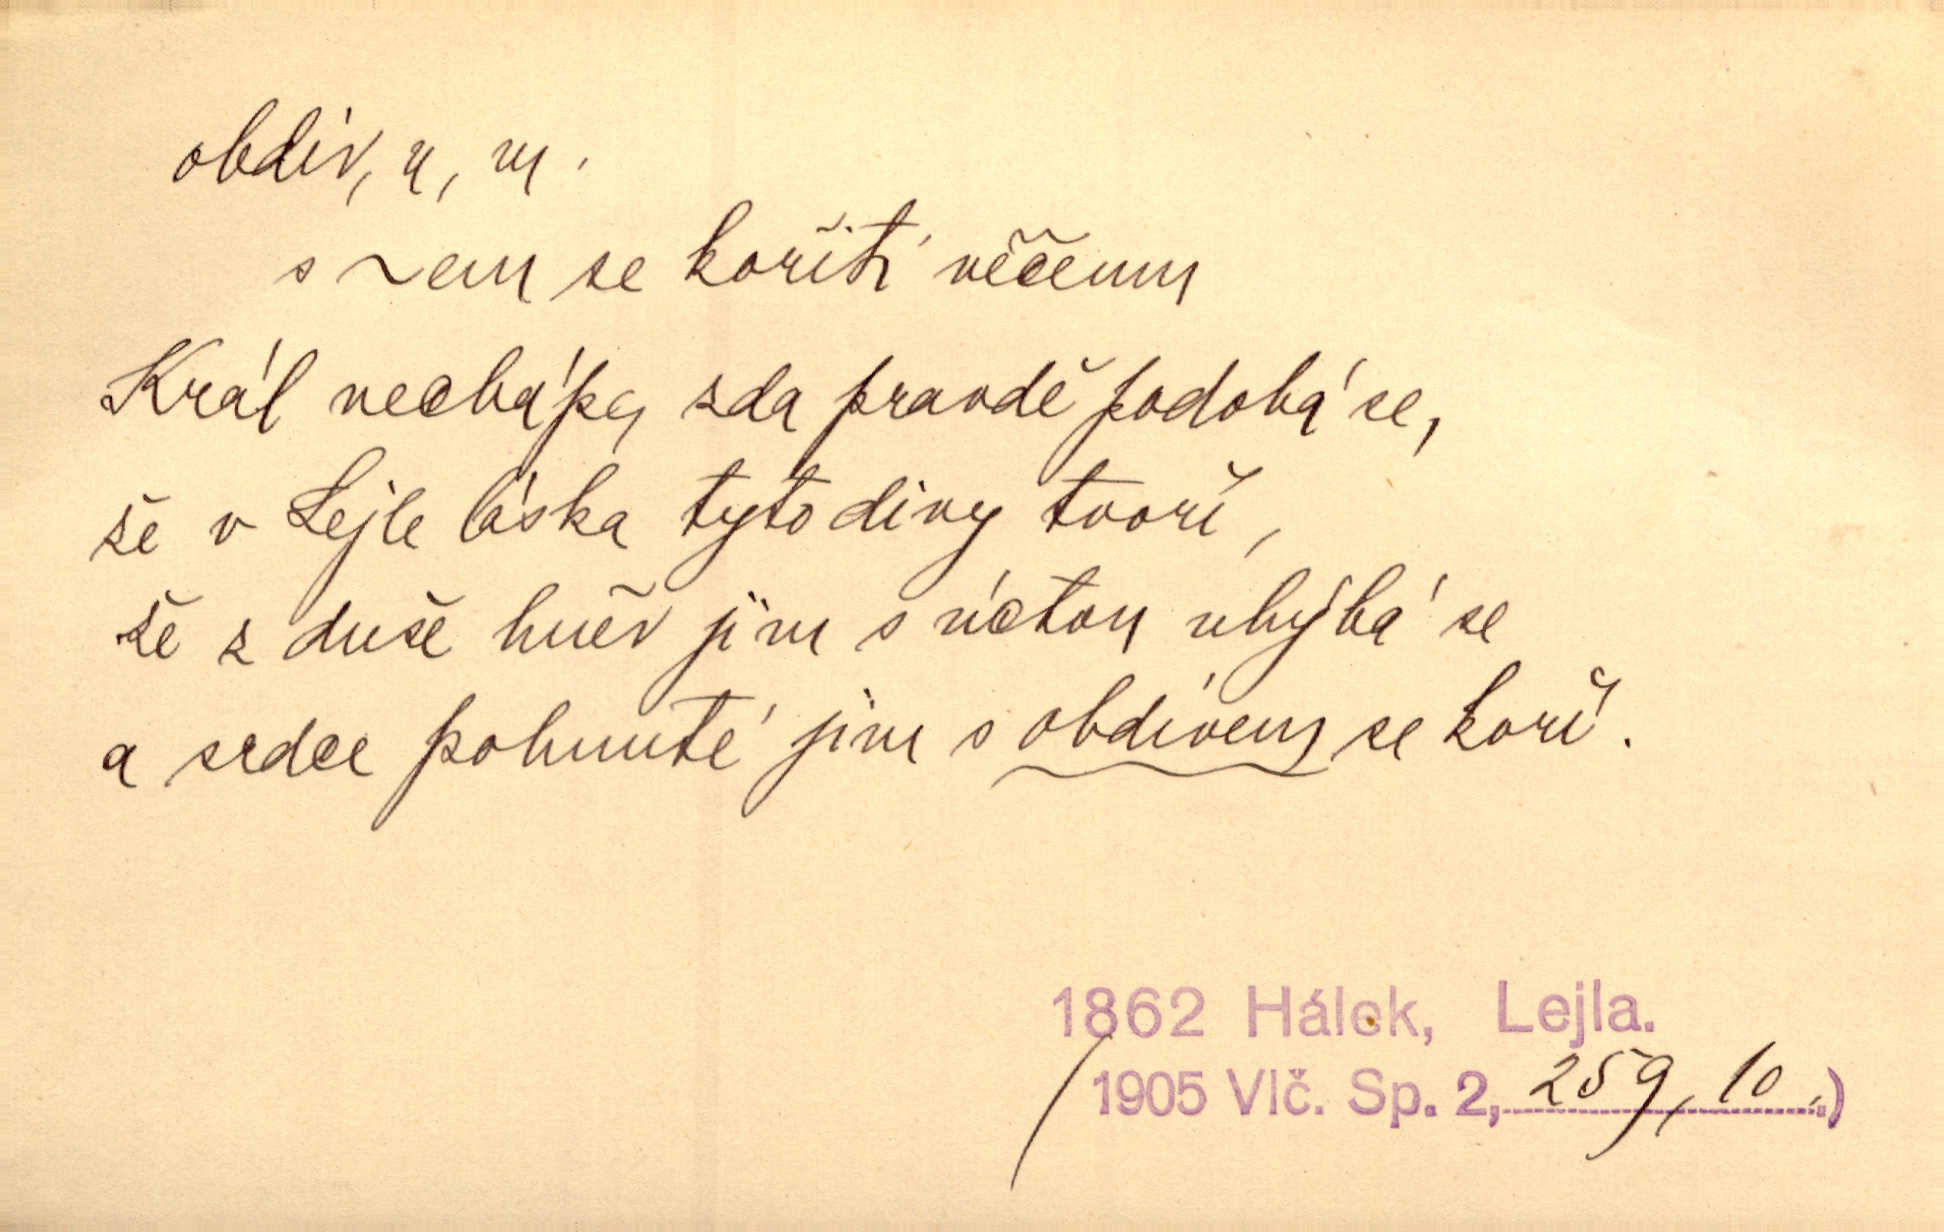 obdiv, u, m.
s ~em se kořiti něčemu
Král nechápe, zda pravdě podobá se,
že v Lejle láska tyto divy tvoří,
že z duše hněv jim s úctou uhýbá se
a srdce pohnuté jim s obdivem se koří.
1862 Hálek, Lejla.
(1905 Vlč. Sp. 2, 259, 10.)